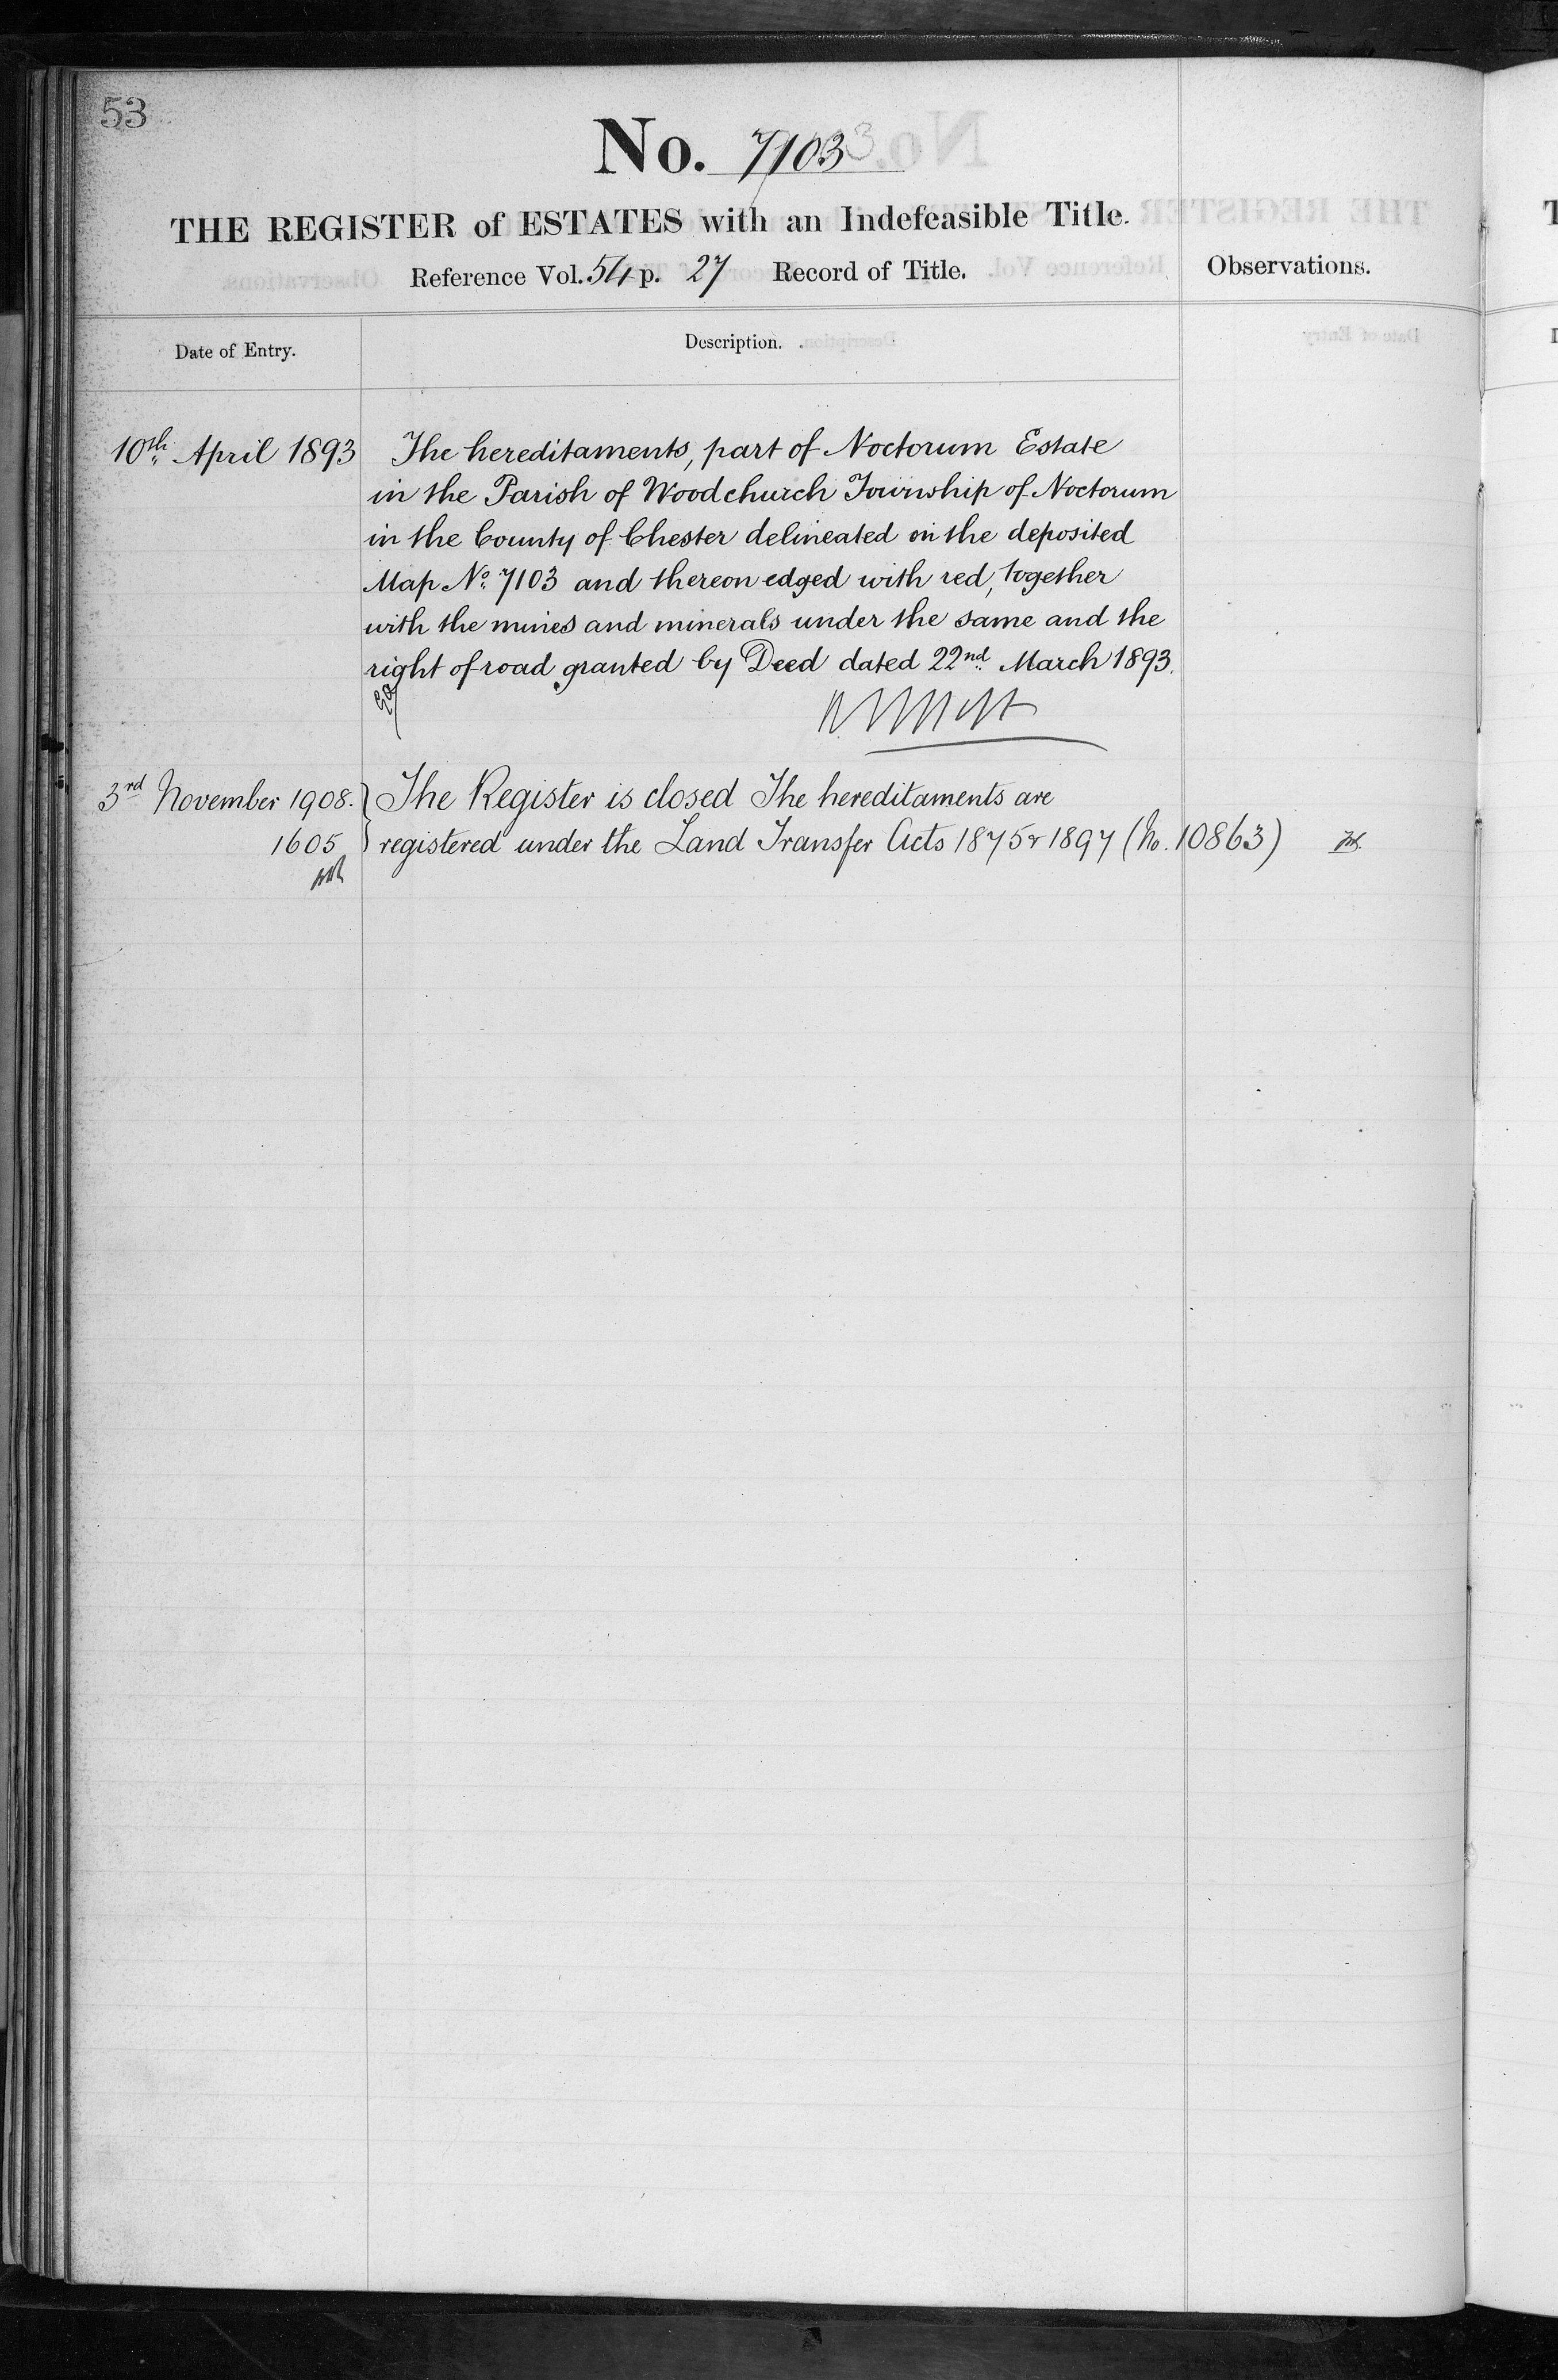 53
No. 7103
THE REGISTER of ESTATES with an Indefeasible Title.
Reference Vol. 54 p. 27 Record of Title.
Observations.
Date of Entry.
Description.
10th April 1893
The hereditaments, part of Noctorum Estate
in the Parish of Woodchurch Township of Noctorum
in the County of Chester delineated on the deposited
Map No. 7103 and thereon edged with red, together
with the mines and minerals under the same and the
right of road granted by Deed dated 22nd March 1893.
3rd November 1908.
1605
The Register is closed The hereditaments are
registered under the Land Transfer Acts 1875 & 1897 (No. 10863)